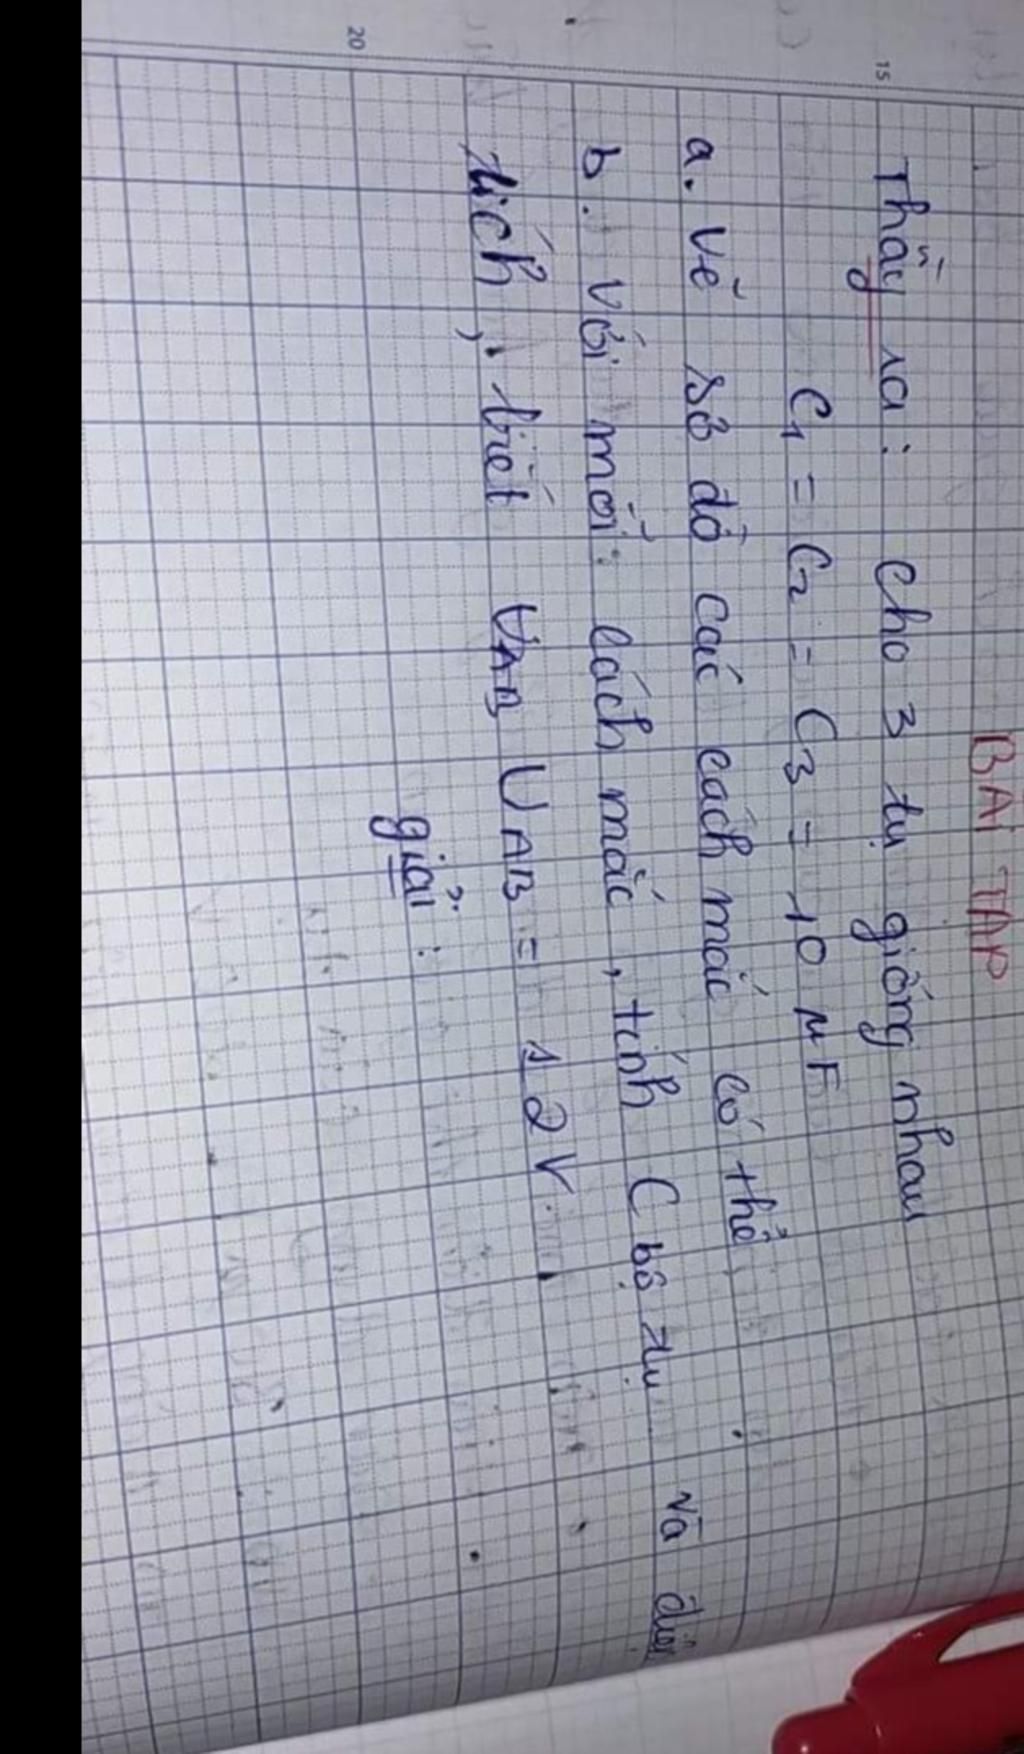 BÀI TẬP
Thầy ra: Cho 3 tụ giống nhau
C1 = C2 = C3 = 10 μF
a. Vẽ sơ đồ các cách mắc có thể
b. Với mỗi cách mắc, tính C bộ tụ và điện
tích, biết UAB UAB = 12V
giải:
15
20